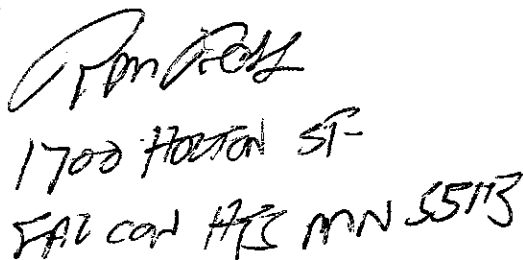 Tom Foss
1700 HOLTON ST-
FALCON HTS MN 55113